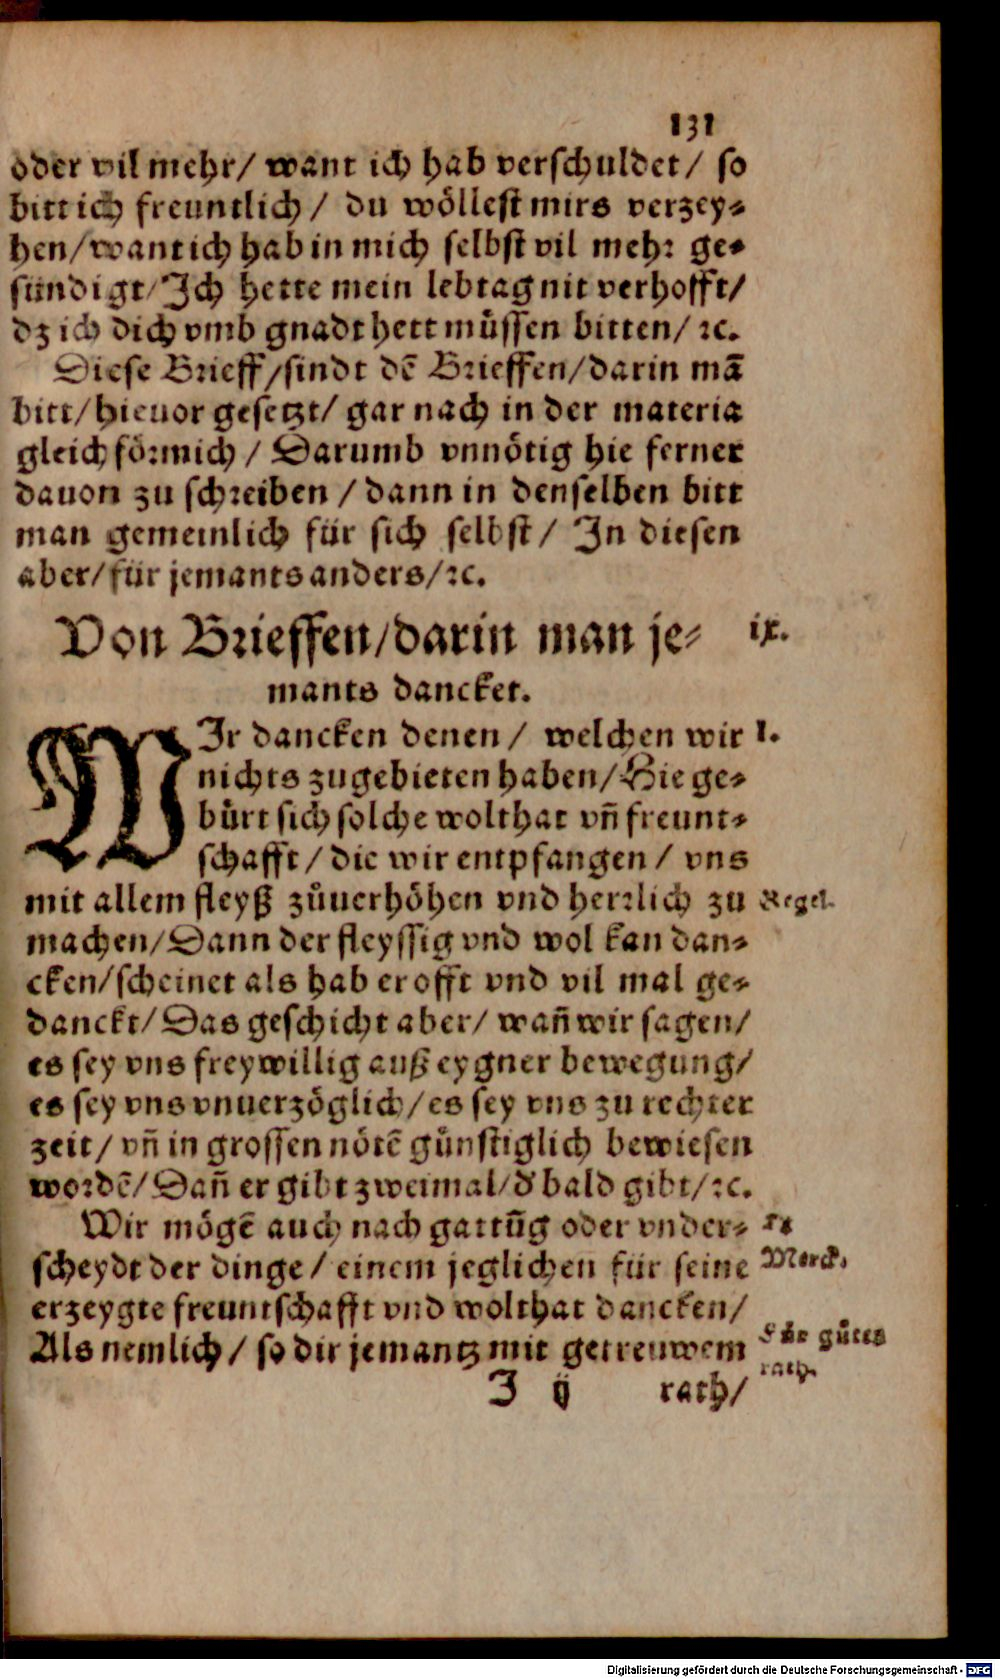 131
oder vil mehr/ want ich hab verschuldet/ so
bitt ich freuntlich/ du wöllest mirs verzey-
hen/ want ich hab in mich selbst vil mehr ge-
sündigt/ Ich hette mein lebtag nit verhofft/
dz ich dich vmb gnadt hett müssen bitten/ ꝛc.
Diese Brieff/ sindt dē Brieffen/ darin mā
bitt/ hieuor gesetzt/ gar nach in der materia
gleichförmich/ Darumb vnnötig hie ferner
dauon zu schreiben/ dann in denselben bitt
man gemeinlich für sich selbst/ In diesen
aber/ für jemants anders/ ꝛc.
Von Brieffen/ darin man je- ix.
mants dancket.
WIr dancken denen/ welchen wir 1.
nichts zugebieten haben/ Hie ge-
bürt sich solche wolthat vñ freunt-
schafft/ die wir entpfangen/ vns
mit allem fleyß zůuerhöhen vnd herrlich zu Regel.
machen/ Dann der fleyssig vnd wol kan dan-
cken/ scheinet als hab er offt vnd vil mal ge-
danckt/ Das geschicht aber/ wañ wir sagen/
es sey vns freywillig auß eygner bewegung/
es sey vns vnuerzöglich/ es sey vns zu rechter
zeit/ vñ in grossen nötē günstiglich bewiesen
wordē/ Dañ er gibt zweimal/ d' bald gibt/ ꝛc.
Wir mögē auch nach gattūg oder vnder-
scheydt der dinge/ einem jeglichen für seine Merck.
erzeygte freuntschafft vnd wolthat dancken/
Als nemlich/ so dir jemantz mit getreuwem Für gůtes
rath.
I ij rath/
Digitalisierung gefördert durch die Deutsche Forschungsgemeinschaft - DFG